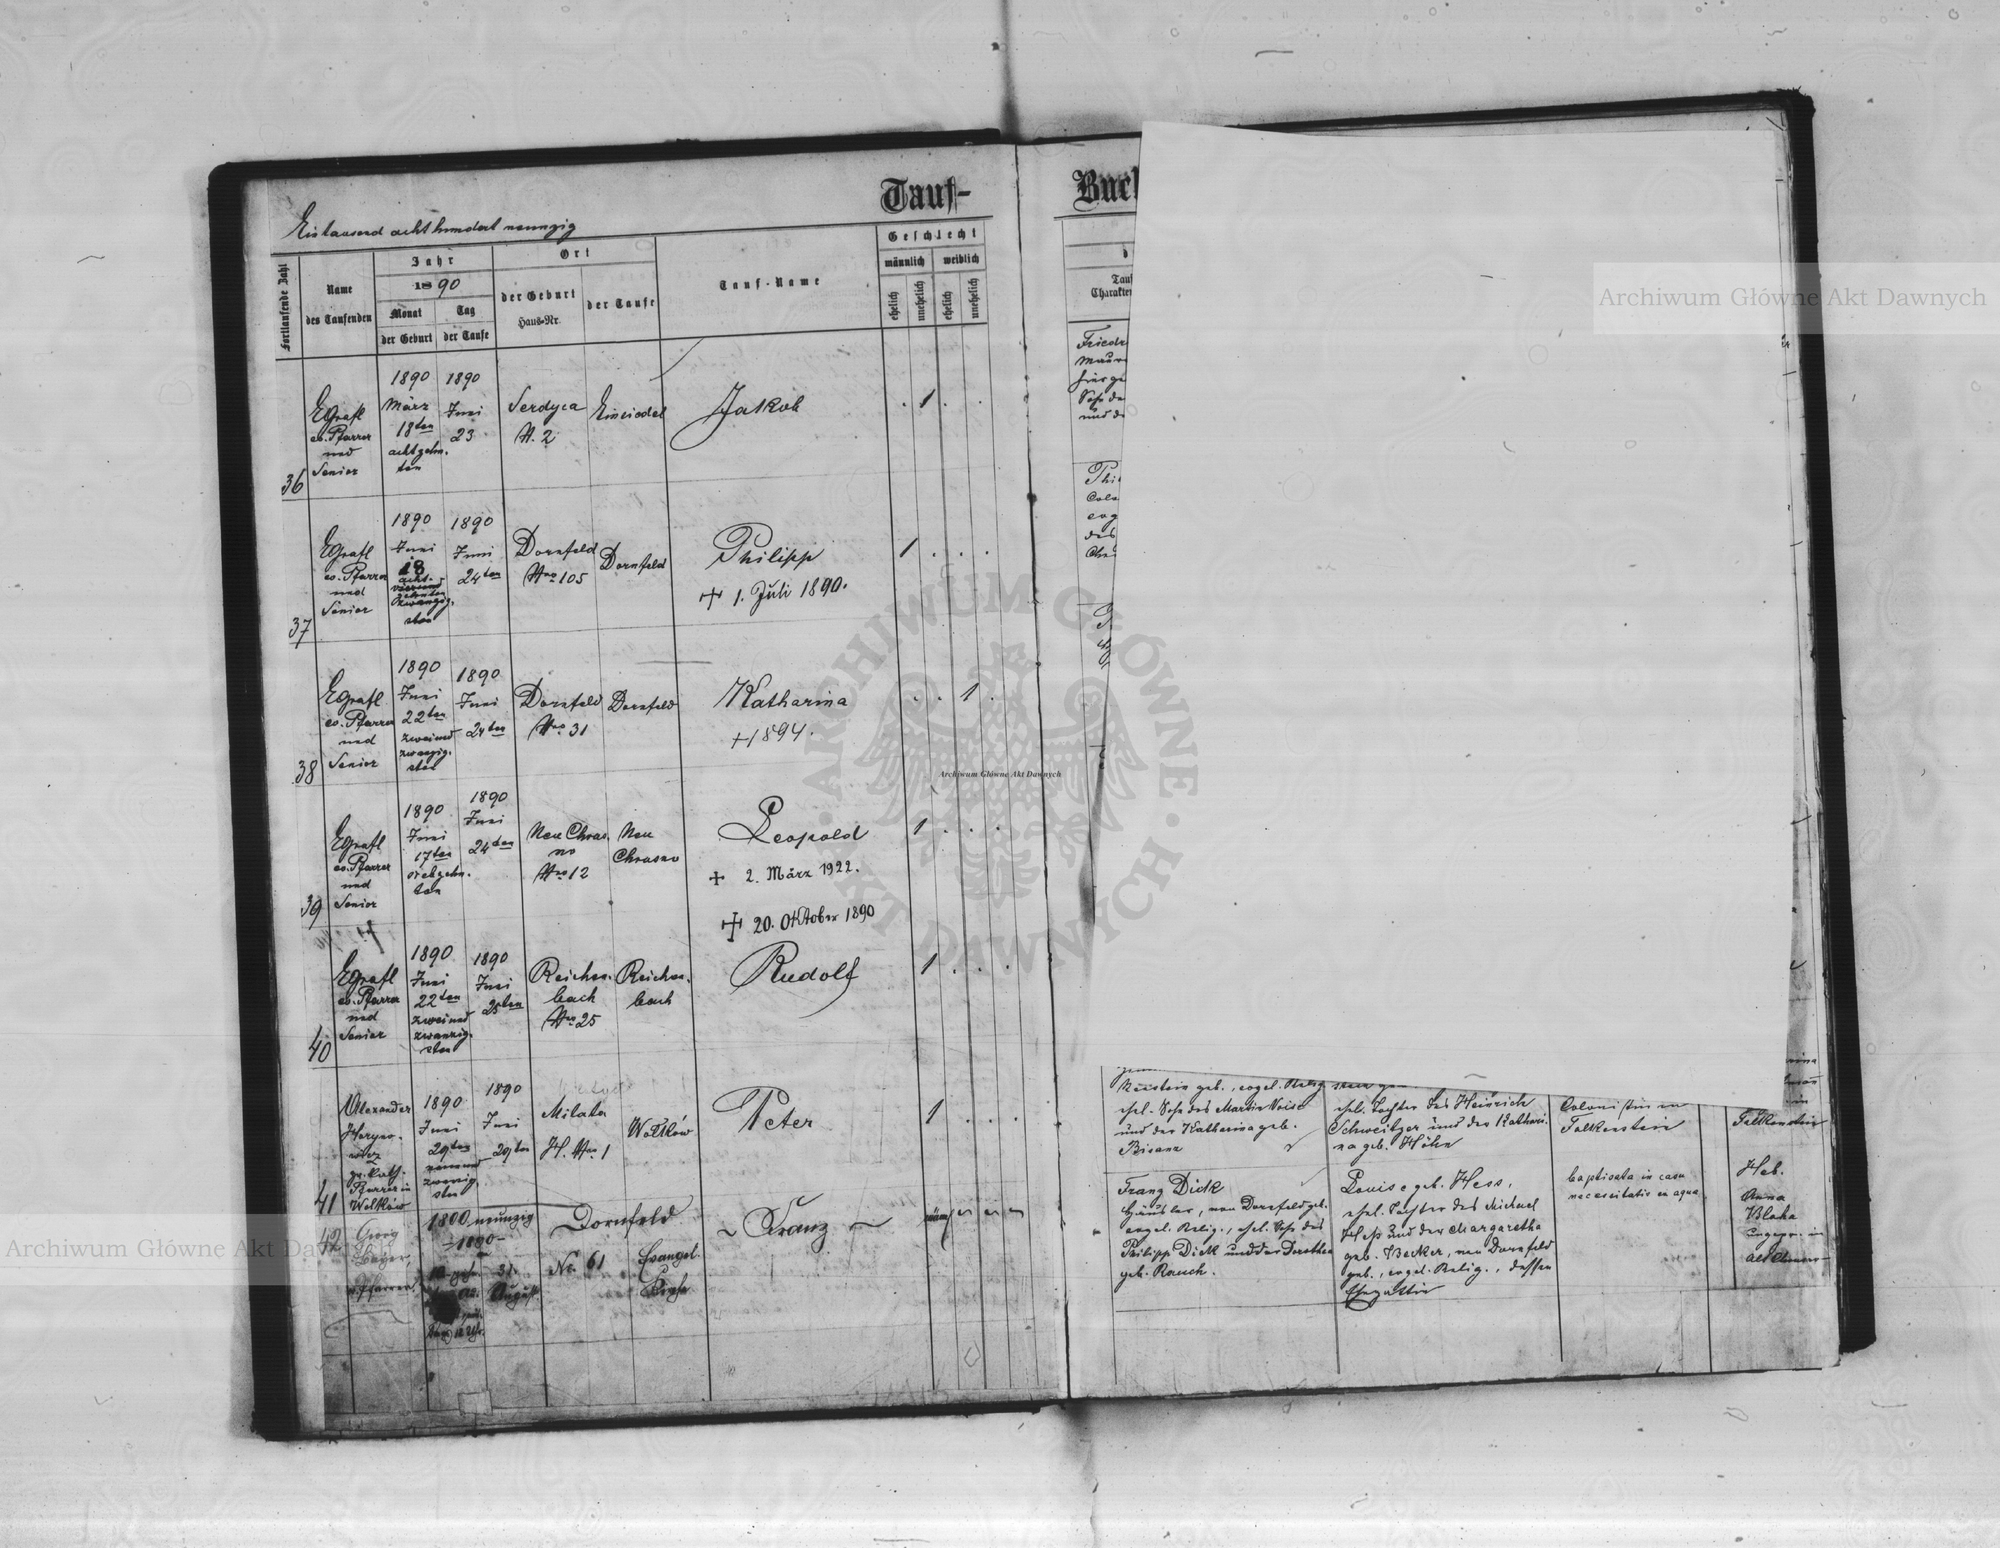 Tauf-
Buch
Eintausend achthundert neunzig
Fortlaufende Zahl
Name
des Taufenden
Jahr
1890
Monat
der Geburt
Tag
der Taufe
Ort
der Geburt
Haus-Nr.
der Taufe
Tauf-Name
Geschlecht
männlich
weiblich
ehelich
unehelich
ehelich
unehelich
36
Egrafl
ev. Pfarrer
und
Senior
1890
März
18ten
achtzehn-
ten
1890
Juni
23
Serdyca
N. 2
Einsiedel
Jakob
1
37
Egrafl
ev. Pfarrer
und
Senior
1890
Juni
18
acht-
zehnten
1890
Juni
24ten
Dornfeld
Nro 105
Dornfeld
Philipp
+ 1. Juli 1890.
1
38
Egrafl
ev. Pfarrer
und
Senior
1890
Juni
22ten
zweiund
zwanzig-
sten
1890
Juni
24ten
Dornfeld
Nro 31
Dornfeld
Katharina
+ 1894.
1
39
Egrafl
ev. Pfarrer
und
Senior
1890
Juni
17ten
siebzehn-
ten
1890
Juni
24ten
Neu Chrus-
no
Nro 12
Neu
Chrusno
Leopold
+ 2. März 1922.
1
40
Egrafl
ev. Pfarrer
und
Senior
1890
Juni
22ten
zweiund
zwanzig-
sten
1890
Juni
25ten
Reichen-
bach
Nro 25
Reichen-
bach
+ 20. Oktober 1890
Rudolf
1
41
Alexander
gr. kath.
Pfarrer in
Wolków
1890
Juni
29ten
neunund
zwanzig-
sten
1890
Juni
29ten
Milata
H. Nro 1
Wolków
Peter
1
42
Georg
Pfarrer
1800 neunzig
-1890-
31.
August
Dornfeld
No. 61
Evangel.
Kirche
~ Franz ~
Friedr
Phil
Colo
evg
des
geb., evgel. Relig.
ehel. Sohn des Martin
und der Katharina geb.
Bisanz
ehel. Tochter des Heinrich
Schweitzer und der Kathari-
na geb. Höhn
Colonistin in
Falkenstein
Falkenstein
Franz Dick
Häusler, von Dornfeld geb.
evgel. Relig., ehel. Sohn des
Philipp Dick und der Dorothea
geb. Rauch.
Louise geb. Hess,
ehel. Tochter des Michael
Heß und der Margaretha
geb. Becker, von Dornfeld
geb., evgel. Relig., dessen
Ehegattin
baptisata in casu
necessitatis ex aqua
Heb.
Anna
Blaha
Archiwum Główne Akt Dawnych
Archiwum Główne Akt Dawnych
Archiwum Główne Akt Dawnych
ARCHIWUM GŁÓWNE AKT DAWNYCH